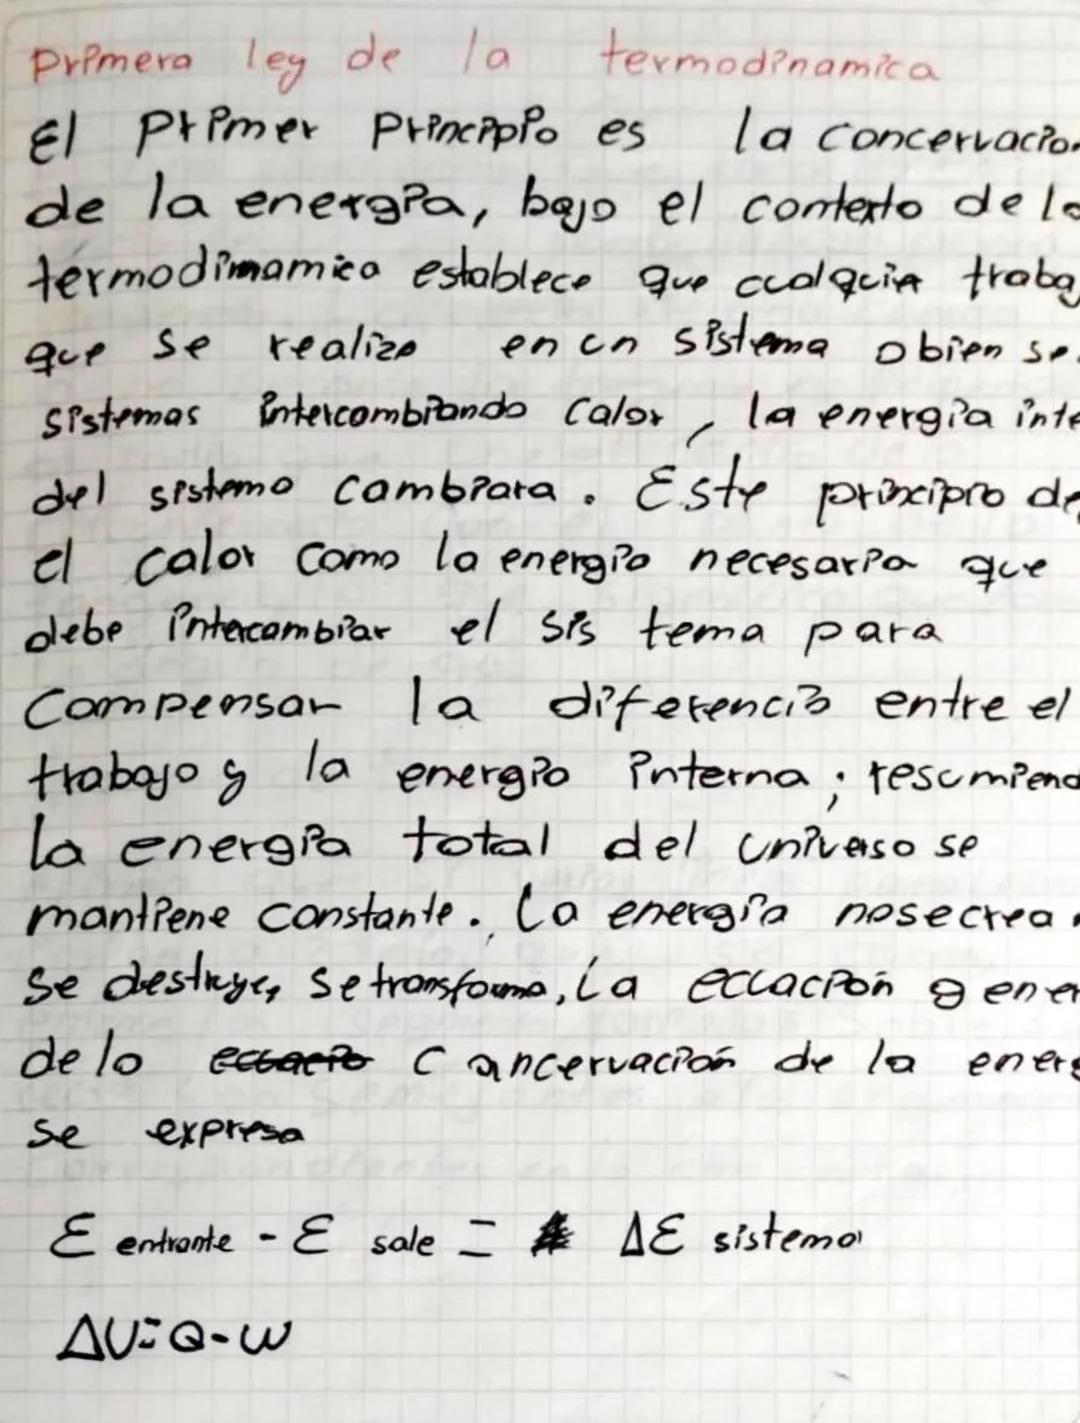 Primera ley de la termodinamica
El primer principio es la concervacion
de la energia, bajo el contexto de la
termodinamica establece que cualquier traba
que se realize en un sistema o bien se
sistemas intercambiando calor, la energia inte
del sistema cambiara. Este principio de
el calor como la energia necesaria que
debe intercambiar el sis tema para
compensar la diferencia entre el
trabajo y la energia interna; resumiend
la energia total del universo se
mantiene constante. La energia nosecrea
se destruye, se transforma, La ecuación gener
de la ecuacio cancervación de la energ
se expresa
E entrante - E sale = ΔE sistema
ΔU=Q-W